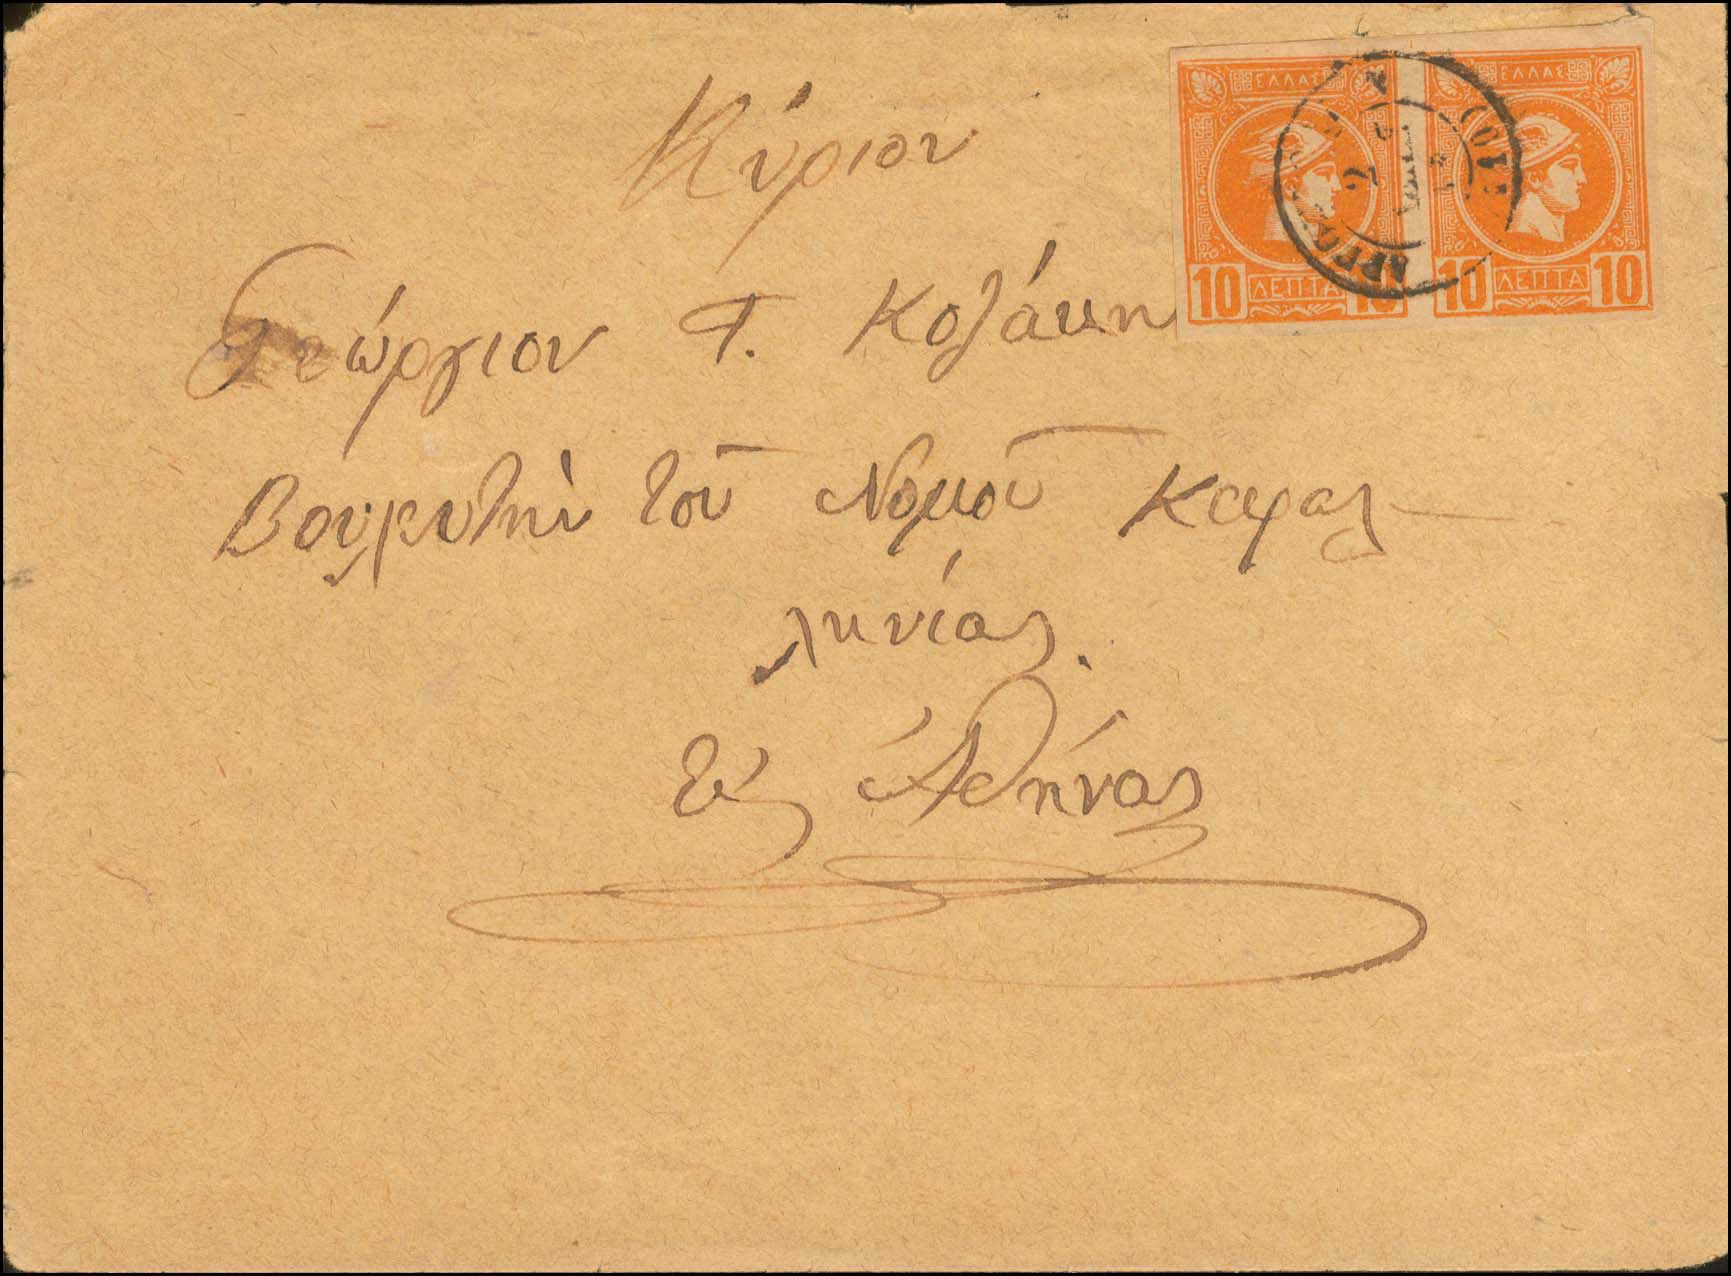 ΕΛΛΑΣ ΕΛΛΑΣ
10 ΛΕΠΤΑ 10 10 ΛΕΠΤΑ 10
Κύριον
Γεώργιον Γ. Κοζάκη
Βουλευτὴν τοῦ Νομοῦ Κεφαλ
ληνίας.
Εἰς Ἀθήνας